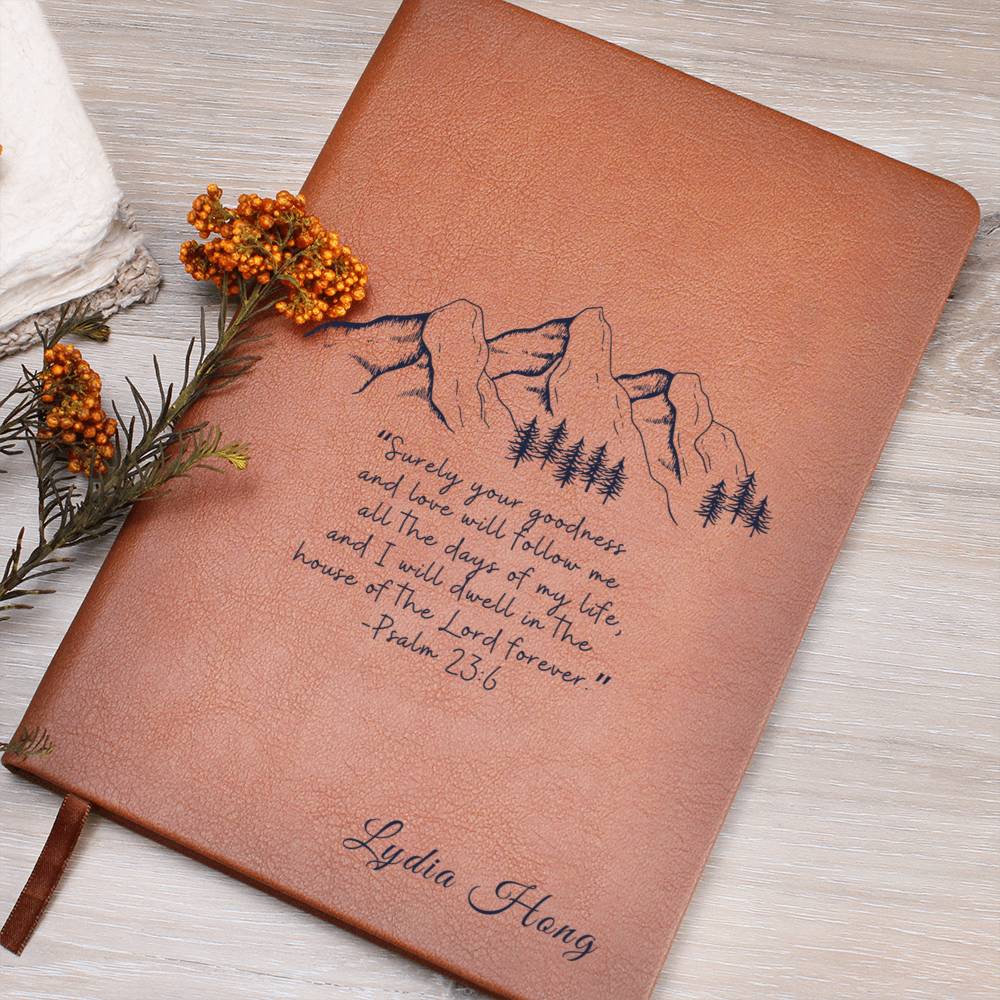 "Surely your goodness
and love will follow me
all the days of my life,
and I will dwell in the
house of the Lord forever."
-Psalm 23:6
Lydia Hong